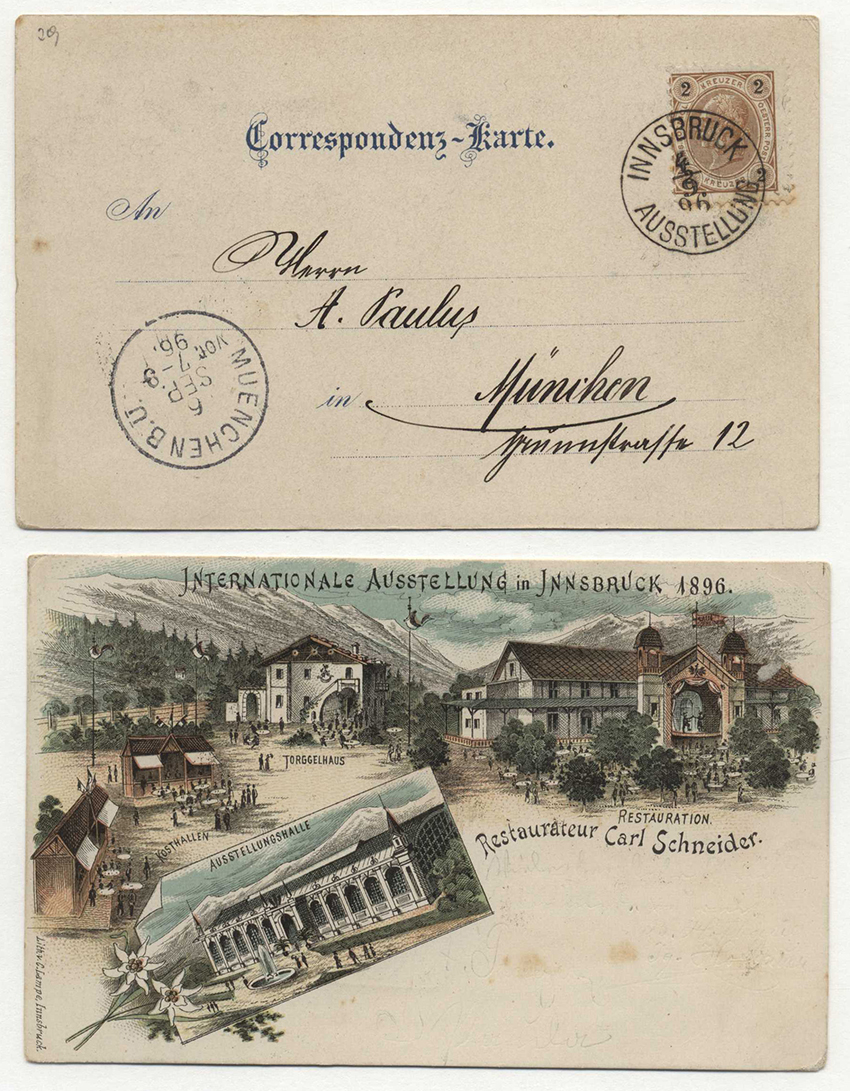 29
Correspondenz-Karte.
2 KREUZER 2
OESTERR. POST
KREUZER 2
INNSBRUCK
4
9
96
AUSSTELLUNG
An
Herrn
A. Paulus
in München
12
MUENCHEN B.Ü.
6
SEP.
7-8
VOR.
96.
INTERNATIONALE AUSSTELLUNG in INNSBRUCK 1896.
TORGGELHAUS
RESTAURATION.
Restaurateur Carl Schneider.
KOSTHALLEN
AUSSTELLUNGSHALLE
Lith. v. C. Lampe, Innsbruck.